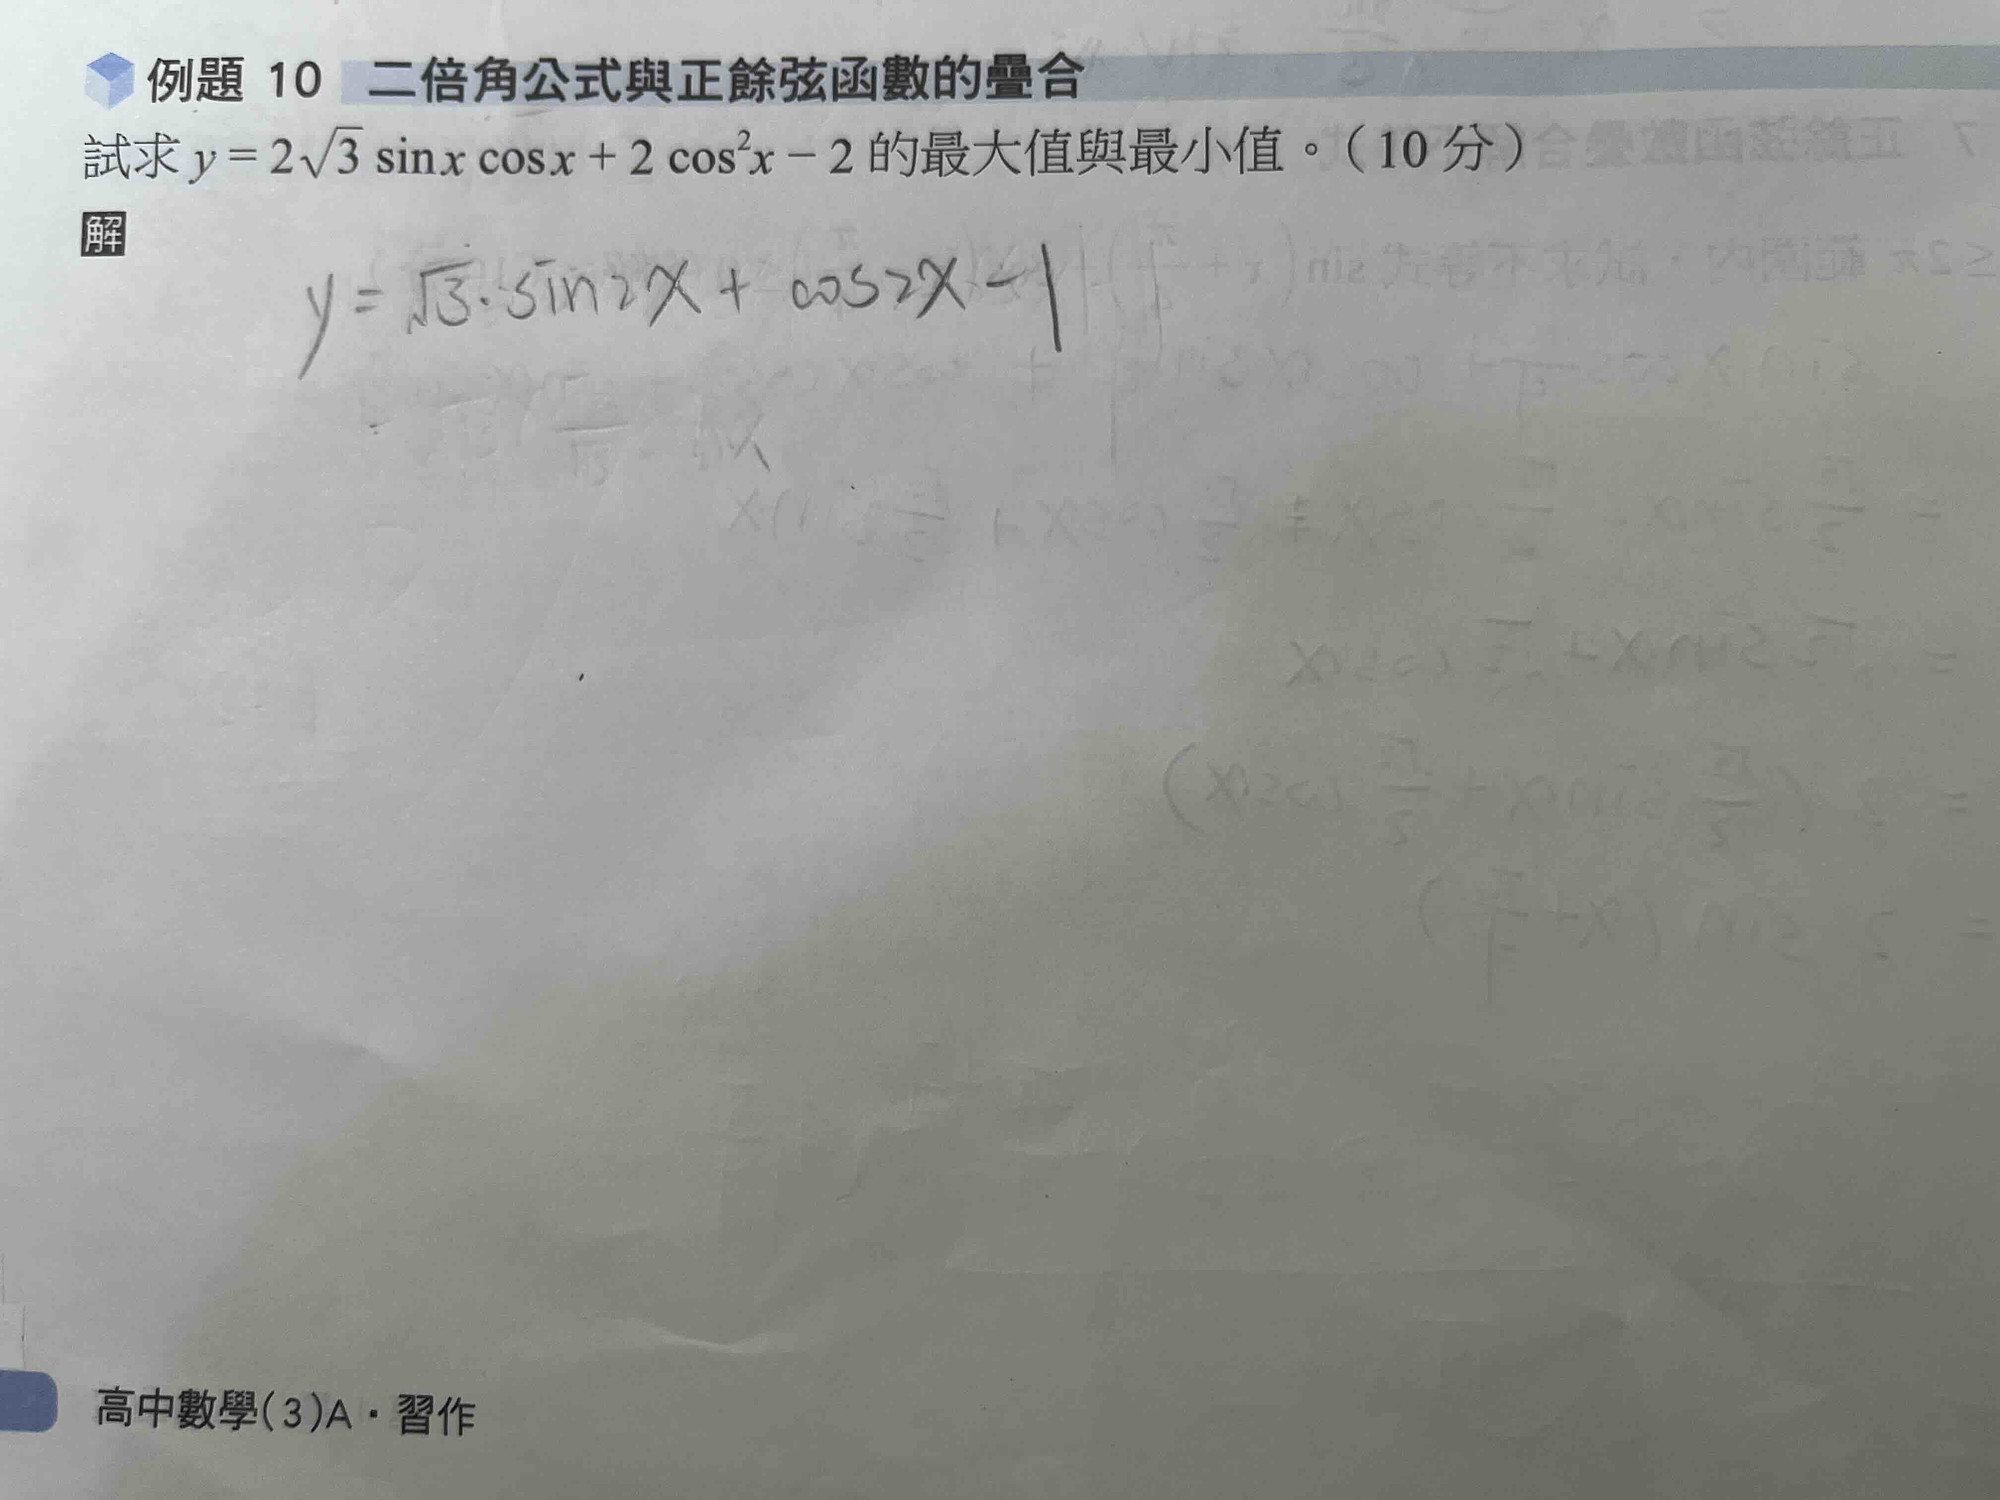 例題 10 二倍角公式與正餘弦函數的疊合
試求 y = 2√3 sinx cosx + 2 cos²x − 2 的最大值與最小值。（10 分）
解
y = √3 · sin2x + cos2x − 1
高中數學(3)A・習作